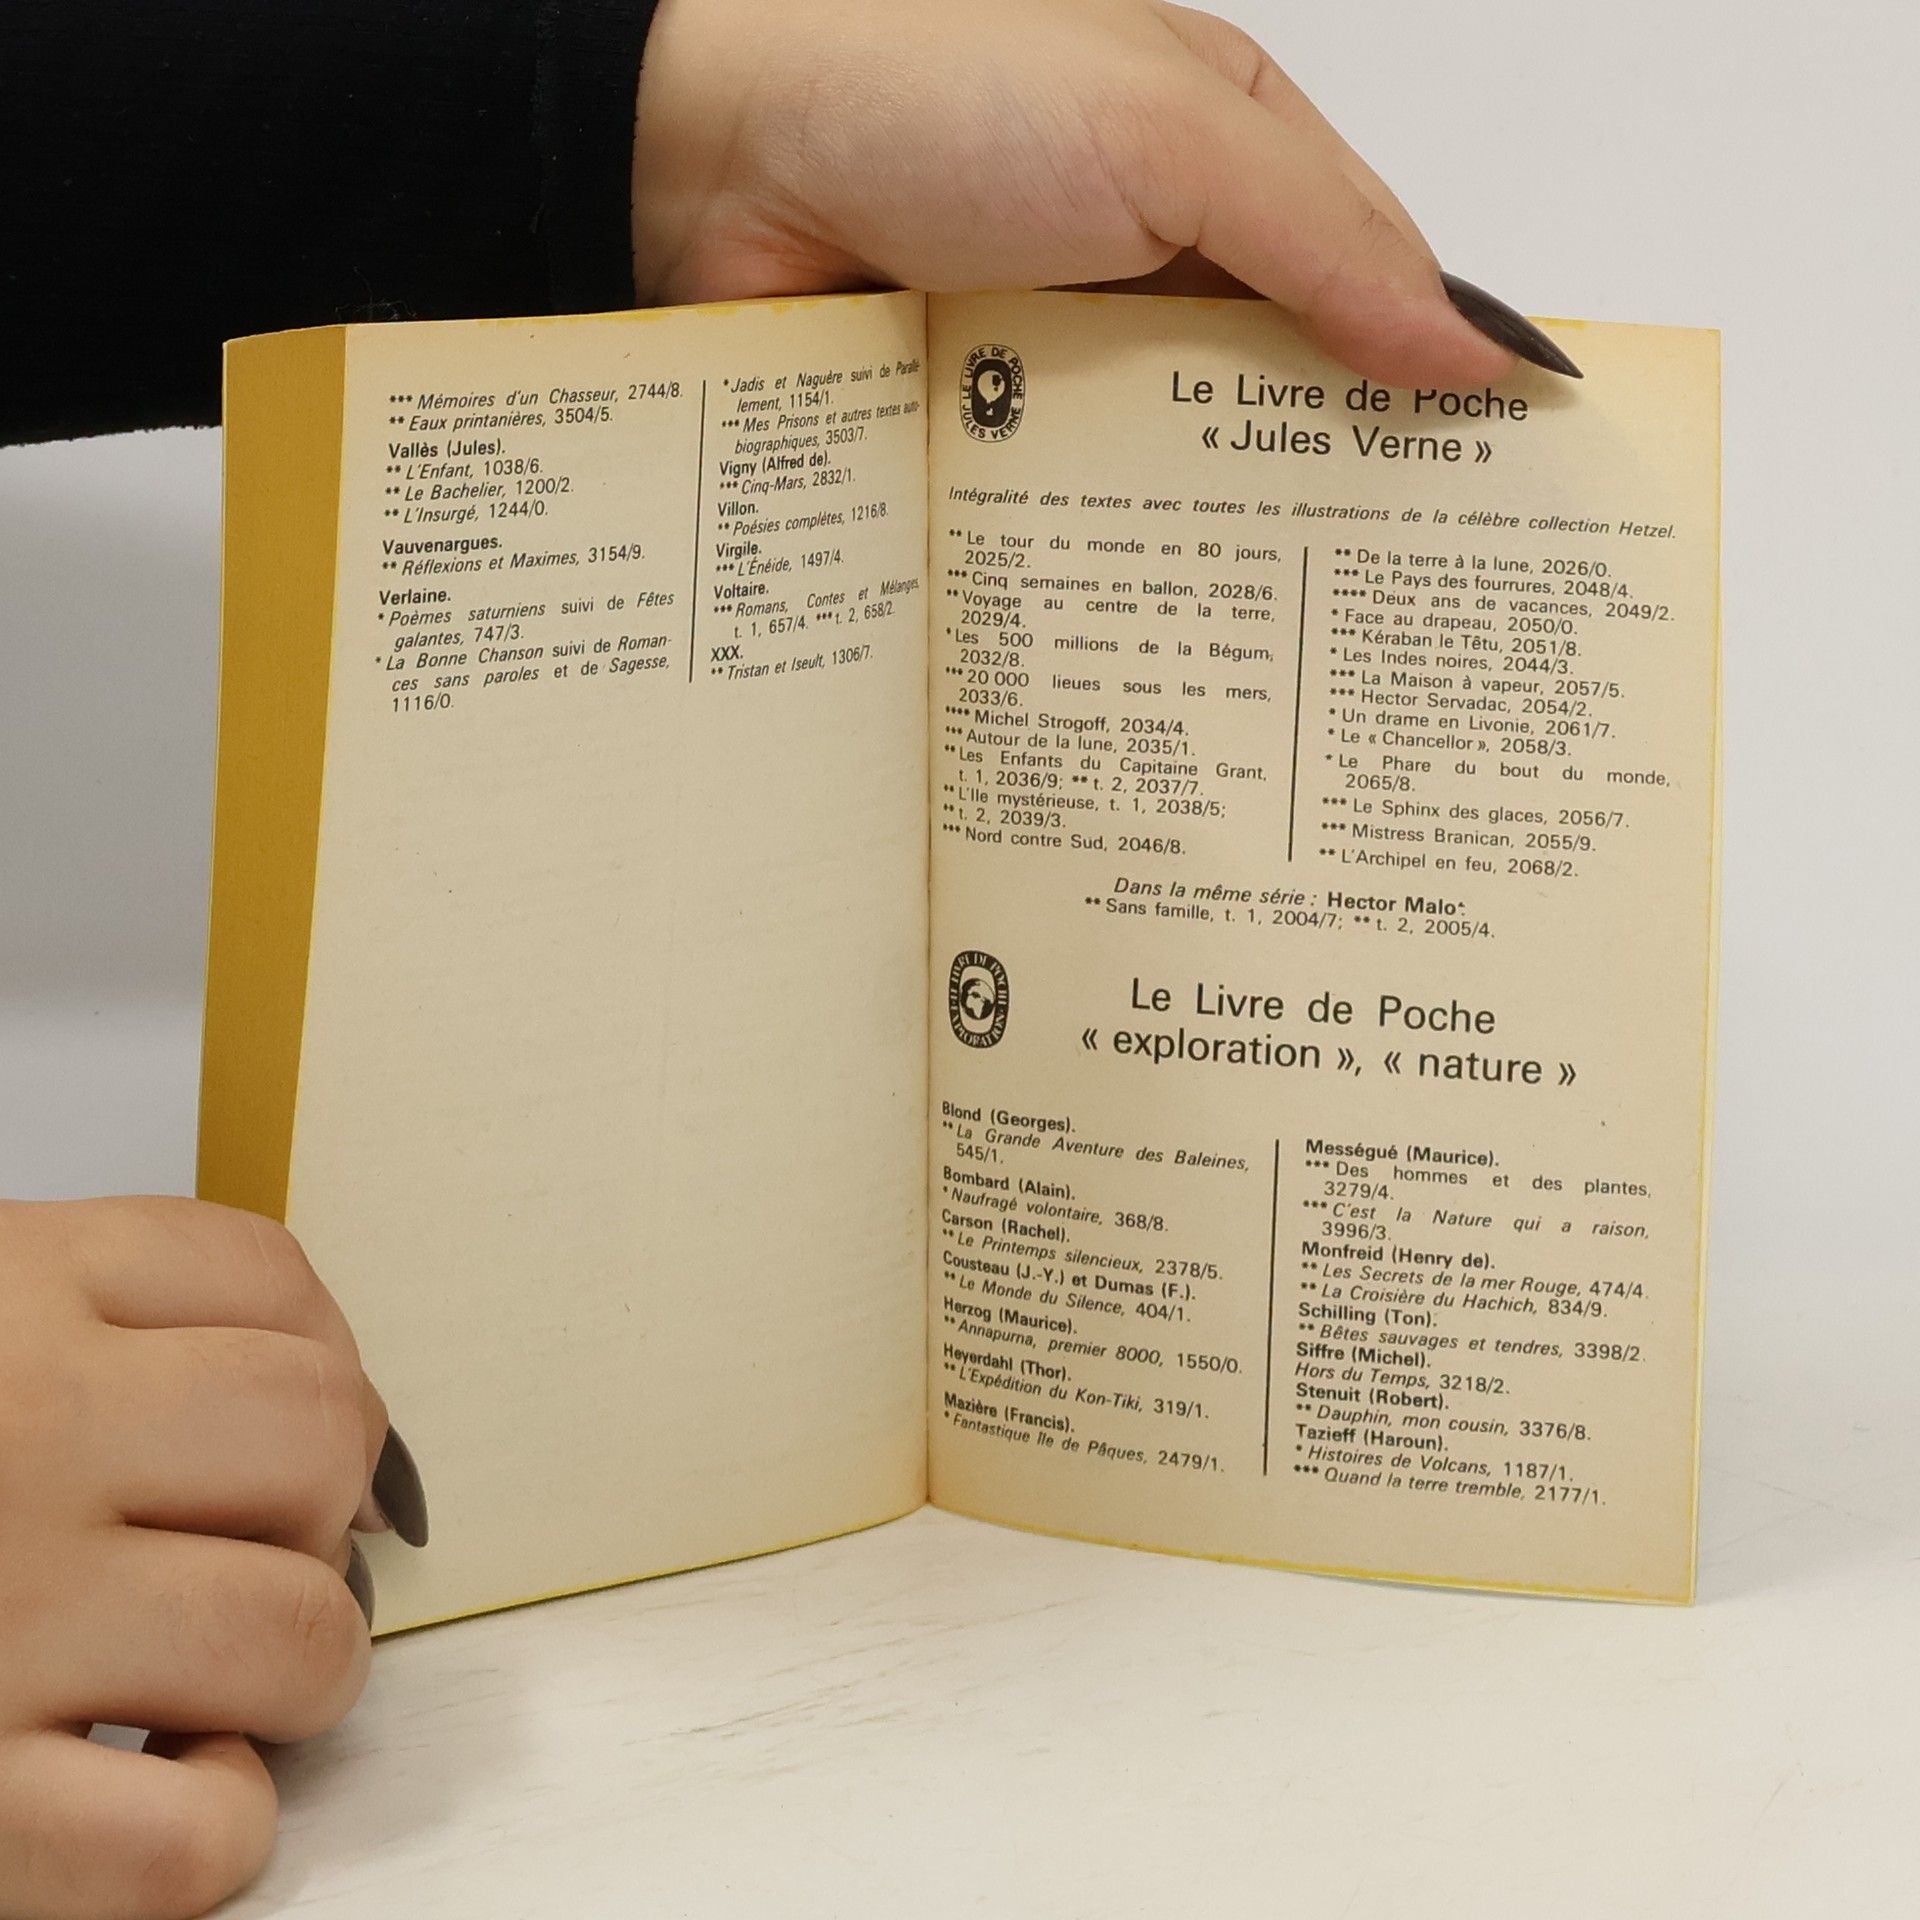 *** Mémoires d'un Chasseur, 2744/8.
** Eaux printanières, 3504/5.
Vallès (Jules).
** L'Enfant, 1038/6.
** Le Bachelier, 1200/2.
** L'Insurgé, 1244/0.
Vauvenargues.
** Réflexions et Maximes, 3154/9.
Verlaine.
* Poèmes saturniens suivi de Fêtes
galantes, 747/3.
* La Bonne Chanson suivi de Roman-
ces sans paroles et de Sagesse,
1116/0.
* Jadis et Naguère suivi de Parallè-
lement, 1154/1.
*** Mes Prisons et autres textes auto-
biographiques, 3503/7.
Vigny (Alfred de).
*** Cinq-Mars, 2832/1.
Villon.
** Poésies complètes, 1216/8.
Virgile.
*** L'Énéide, 1497/4.
Voltaire.
*** Romans, Contes et Mélanges,
t. 1, 657/4. *** t. 2, 658/2.
XXX.
** Tristan et Iseult, 1306/7.
LE LIVRE DE POCHE
JULES VERNE
Le Livre de Poche
« Jules Verne »
Intégralité des textes avec toutes les illustrations de la célèbre collection Hetzel.
** Le tour du monde en 80 jours,
2025/2.
*** Cinq semaines en ballon, 2028/6.
** Voyage au centre de la terre,
2029/4.
* Les 500 millions de la Bégum,
2032/8.
*** 20 000 lieues sous les mers,
2033/6.
**** Michel Strogoff, 2034/4.
*** Autour de la lune, 2035/1.
** Les Enfants du Capitaine Grant,
t. 1, 2036/9; ** t. 2, 2037/7.
** L'Ile mystérieuse, t. 1, 2038/5;
** t. 2, 2039/3.
*** Nord contre Sud, 2046/8.
** De la terre à la lune, 2026/0.
*** Le Pays des fourrures, 2048/4.
**** Deux ans de vacances, 2049/2.
* Face au drapeau, 2050/0.
*** Kéraban le Têtu, 2051/8.
* Les Indes noires, 2044/3.
*** La Maison à vapeur, 2057/5.
*** Hector Servadac, 2054/2.
* Un drame en Livonie, 2061/7.
* Le « Chancellor », 2058/3.
* Le Phare du bout du monde,
2065/8.
*** Le Sphinx des glaces, 2056/7.
*** Mistress Branican, 2055/9.
** L'Archipel en feu, 2068/2.
Dans la même série : Hector Malot.
** Sans famille, t. 1, 2004/7; ** t. 2, 2005/4.
LE LIVRE DE POCHE
EXPLORATION
Le Livre de Poche
« exploration », « nature »
Blond (Georges).
** La Grande Aventure des Baleines,
545/1.
Bombard (Alain).
* Naufragé volontaire, 368/8.
Carson (Rachel).
** Le Printemps silencieux, 2378/5.
Cousteau (J.-Y.) et Dumas (F.).
** Le Monde du Silence, 404/1.
Herzog (Maurice).
** Annapurna, premier 8000, 1550/0.
Heyerdahl (Thor).
** L'Expédition du Kon-Tiki, 319/1.
Mazière (Francis).
* Fantastique Ile de Pâques, 2479/1.
Mességué (Maurice).
*** Des hommes et des plantes,
3279/4.
*** C'est la Nature qui a raison,
3996/3.
Monfreid (Henry de).
** Les Secrets de la mer Rouge, 474/4.
** La Croisière du Hachich, 834/9.
Schilling (Ton).
** Bêtes sauvages et tendres, 3398/2.
Siffre (Michel).
Hors du Temps, 3218/2.
Stenuit (Robert).
** Dauphin, mon cousin, 3376/8.
Tazieff (Haroun).
* Histoires de Volcans, 1187/1.
*** Quand la terre tremble, 2177/1.